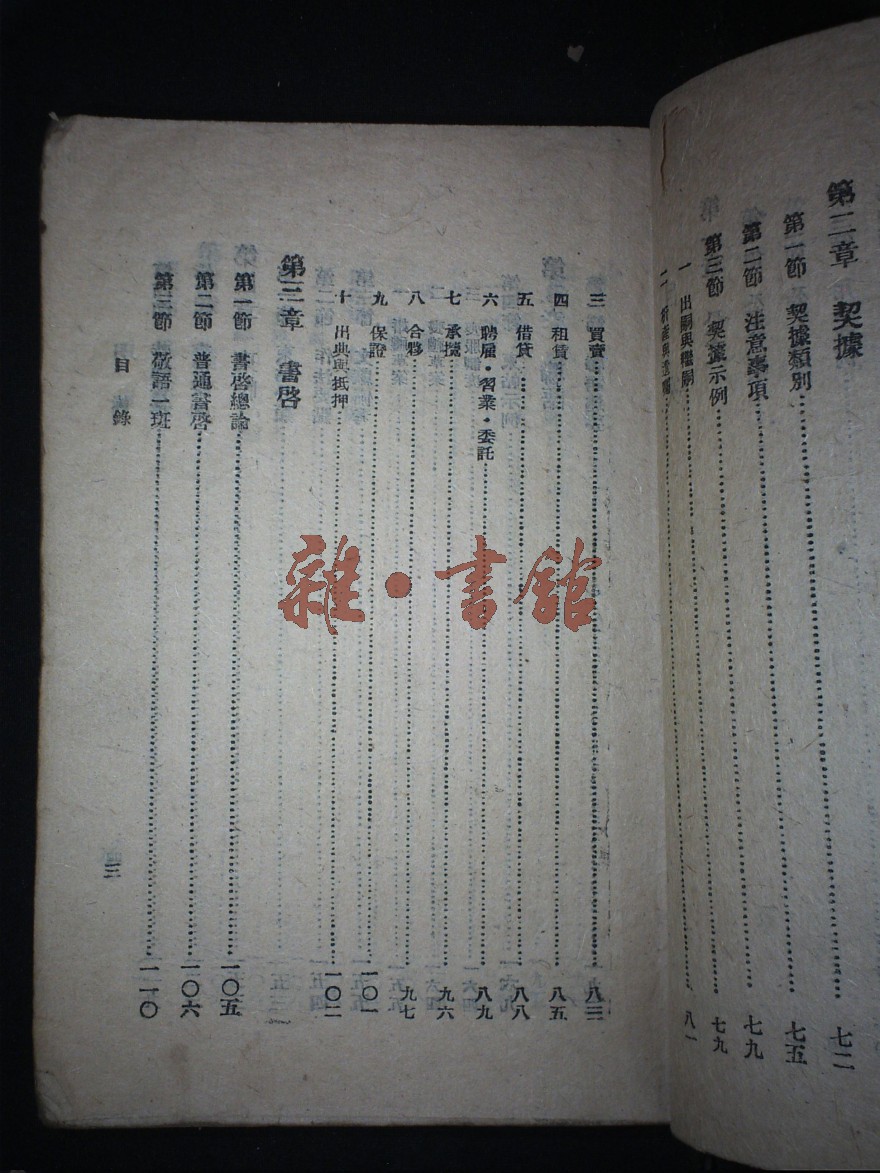 第二章 契據 七二
第一節 契據類別 七五
第二節 注意事項 七九
第三節 契據示例 七九
一 出嗣與繼嗣
二 八一
三 買賣 八三
四 租賃 八五
五 借貸 八八
六 聘雇·習業·委託 八九
七 承攬 九六
八 合夥 九七
九 保證 一〇一
十 出典與抵押 一〇二
第三章 書啓
第一節 書啓總論 一〇五
第二節 普通書啓 一〇六
第三節 敬語一班 一一〇
目錄 三
雜·書館